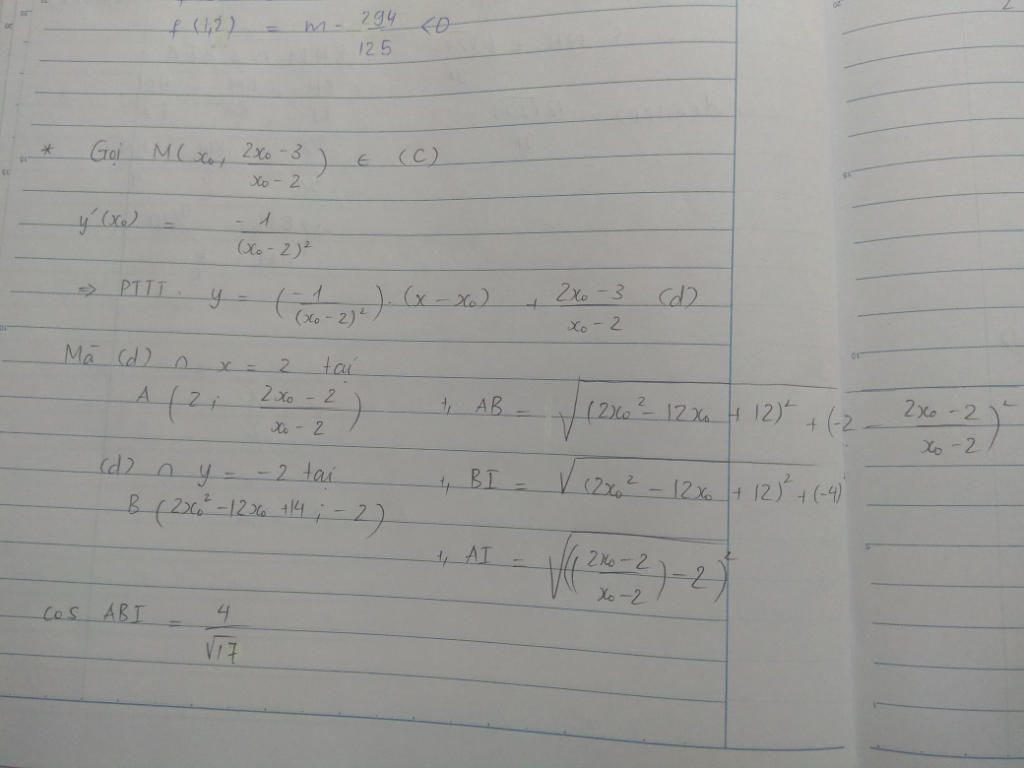 f(1,2) = m - 294/125 < 0
* Gọi M(x₀, (2x₀ - 3)/(x₀ - 2)) ∈ (C)
y'(x₀) = -1/(x₀ - 2)²
⇒ PTTT. y = (-1/(x₀ - 2)²).(x - x₀) + (2x₀ - 3)/(x₀ - 2) (d)
Mà (d) ∩ x = 2 tại
A(2; (2x₀ - 2)/(x₀ - 2))
(d) ∩ y = -2 tại
B(2x₀² - 12x₀ + 14; -2)
+, AB = √((2x₀² - 12x₀ + 12)² + (-2 - (2x₀ - 2)/(x₀ - 2))²)
+, BI = √((2x₀² - 12x₀ + 12)² + (-4)²)
+, AI = √(((2x₀ - 2)/(x₀ - 2)) - 2)²
cos ABI = 4/√17